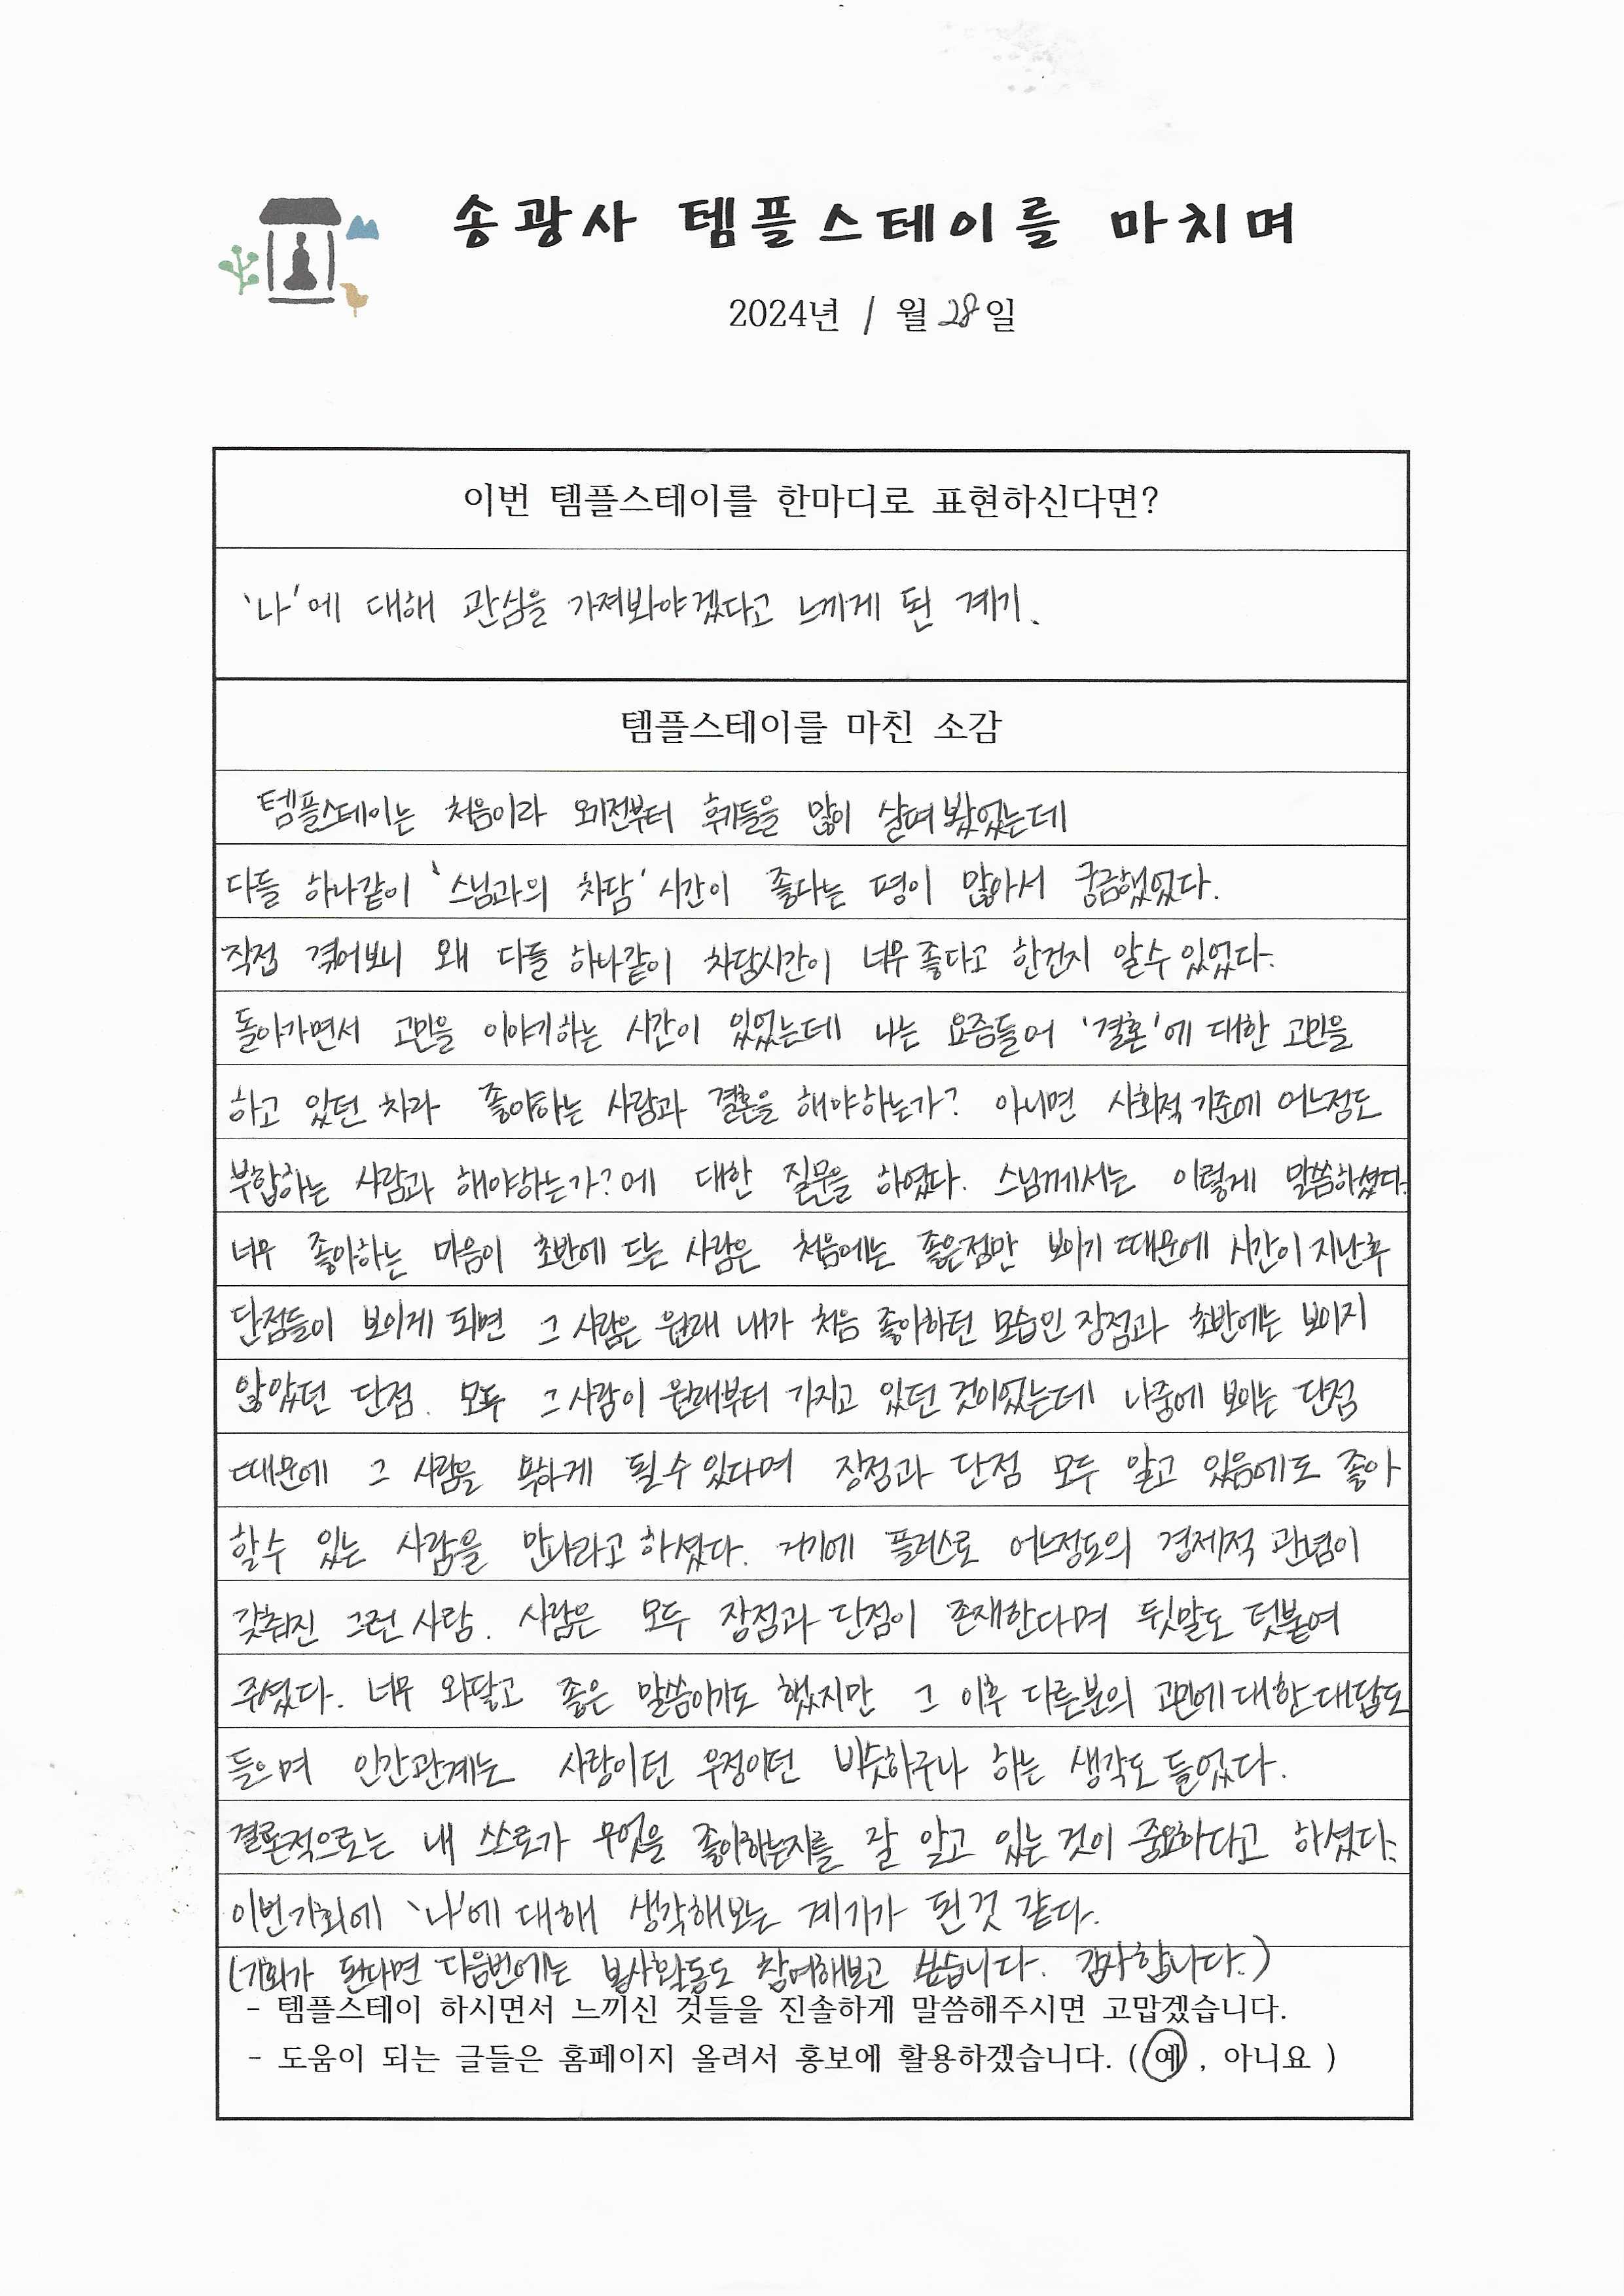 송광사 템플스테이를 마치며
2024년 1월 28일
이번 템플스테이를 한마디로 표현하신다면?
'나'에 대해 관심을 가져봐야겠다고 느끼게 된 계기.
템플스테이를 마친 소감
템플스테이는 처음이라 오기전부터 후기들을 많이 살펴봤었는데
다들 하나같이 '스님과의 차담' 시간이 좋다는 평이 많아서 궁금했었다.
직접 겪어보니 왜 다들 하나같이 차담시간이 너무 좋다고 한건지 알수 있었다.
돌아가면서 고민을 이야기하는 시간이 있었는데 나는 요즘들어 '결혼'에 대한 고민을
하고 있던 차라 좋아하는 사람과 결혼을 해야하는가? 아니면 사회적 기준에 어느정도
부합하는 사람과 해야하는가?에 대한 질문을 하였다. 스님께서는 이렇게 말씀하셨다.
너무 좋아하는 마음이 초반에 드는 사람은 처음에는 좋은점만 보이기 때문에 시간이 지난후
단점들이 보이게 되면 그 사람은 원래 내가 처음 좋아하던 모습인 장점과 초반에는 보이지
않았던 단점. 모두 그 사람이 원래부터 가지고 있던 것이었는데 나중에 보이는 단점
때문에 그 사람을 욕하게 될수 있다며 장점과 단점 모두 알고 있음에도 좋아
할수 있는 사람을 만나라고 하셨다. 거기에 플러스로 어느정도의 경제적 관념이
갖춰진 그런 사람. 사람은 모두 장점과 단점이 존재한다며 뒷말도 덧붙여
주셨다. 너무 와닿고 좋은 말씀이기도 했지만 그 이후 다른분의 고민에 대한 대답도
들으며 인간관계는 사랑이던 우정이던 비슷하구나 하는 생각도 들었다.
결론적으로는 내 스스로가 무엇을 좋아하는지를 잘 알고 있는 것이 중요하다고 하셨다.
이번기회에 '나'에 대해 생각해보는 계기가 된것 같다.
(기회가 된다면 다음번에는 봉사활동도 참여해보고 싶습니다. 감사합니다.)
- 템플스테이 하시면서 느끼신 것들을 진솔하게 말씀해주시면 고맙겠습니다.
- 도움이 되는 글들은 홈페이지 올려서 홍보에 활용하겠습니다. ( 예 , 아니요 )